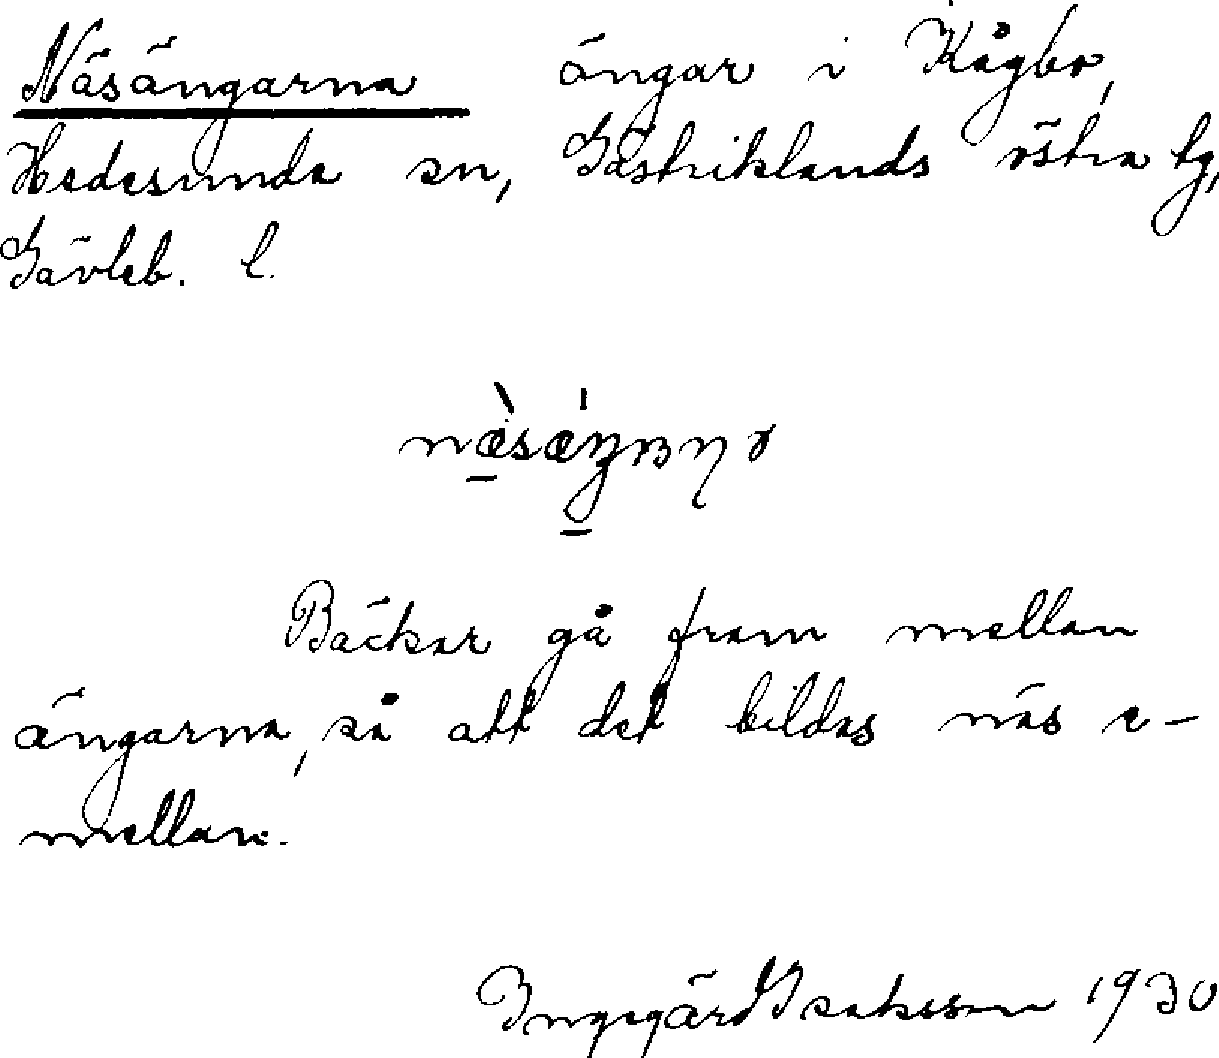 Näsängarna ängar i Kågbo,
Hedesunda sn, Gästriklands östra tg,
Gävleb. l.
Bäckar gå fram mellan
ängarna, så att det bildas näs e-
mellan.
Ingegärd Isaksson 1930